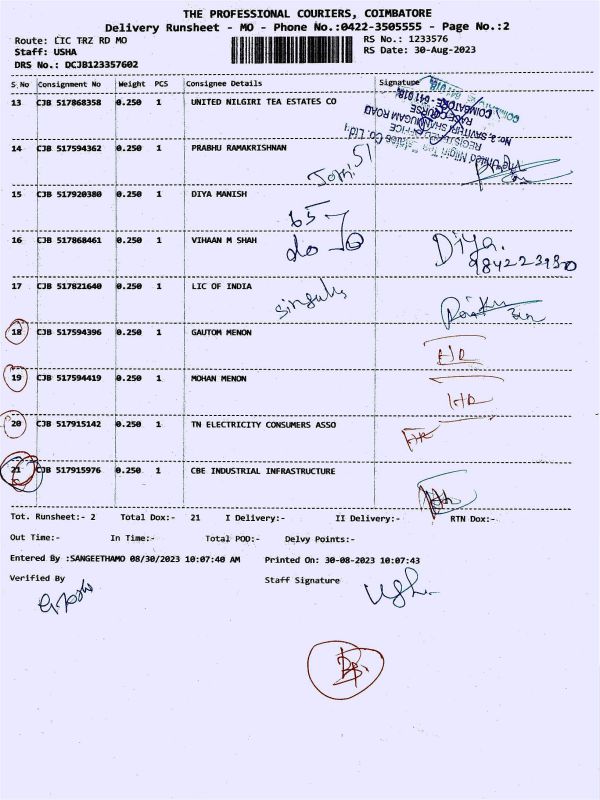 THE PROFESSIONAL COURIERS, COIMBATORE
Delivery Runsheet - MO - Phone No.:0422-3505555 - Page No.:2
Route: LIC TRZ RD MO RS No.: 1233576
Staff: USHA RS Date: 30-Aug-2023
DRS No.: DCJB123357602
S_No Consignment No Weight PCS Consignee Details Signature
13 CJB 517868358 0.250 1 UNITED NILGIRI TEA ESTATES CO
14 CJB 517594362 0.250 1 PRABHU RAMAKRISHNAN
15 CJB 517920380 0.250 1 DIYA MANISH
16 CJB 517868461 0.250 1 VIHAAN M SHAH Diya.
9842239830
17 CJB 517821640 0.250 1 LIC OF INDIA
18 CJB 517594396 0.250 1 GAUTOM MENON
19 CJB 517594419 0.250 1 MOHAN MENON
20 CJB 517915142 0.250 1 TN ELECTRICITY CONSUMERS ASSO
21 CJB 517915976 0.250 1 CBE INDUSTRIAL INFRASTRUCTURE
Tot. Runsheet:- 2 Total Dox:- 21 I Delivery:- II Delivery:- RTN Dox:-
Out Time:- In Time:- Total POD:- Delvy Points:-
Entered By :SANGEETHAMO 08/30/2023 10:07:40 AM Printed On: 30-08-2023 10:07:43
Verified By Staff Signature